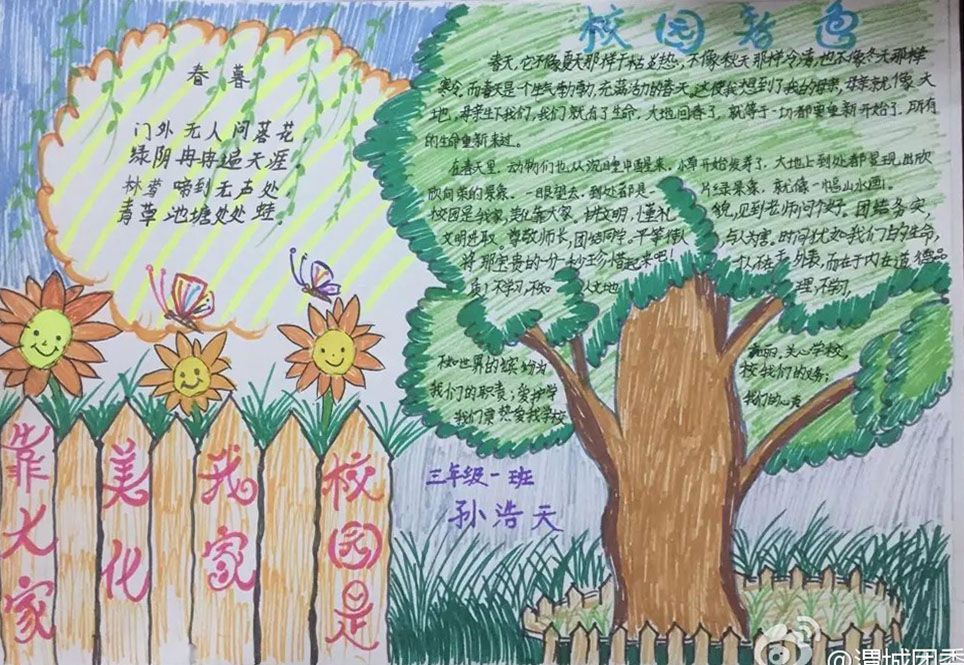 校园春色
春暮
门外无人问落花,
绿阴冉冉遍天涯。
林莺啼到无声处,
青草池塘处处蛙。
春天,它不像夏天那样干枯炎热,不像秋天那样冷清,也不像冬天那样
寒冷,而春天是个生气勃勃,充满活力的春天,这使我想到了我的母亲,母亲就像大
地,母亲生下我们,我们就有了生命,大地回春了,就等于一切都要重新开始了,所有
的生命重新来过。
在春天里,动物们也从沉睡中醒来,小草开始发芽了,大地上到处都呈现出欣
欣向荣的景象。一眼望去,到处都是一片绿景象,就像一幅山水画。
校园是我家,美化靠大家,讲文明,懂礼貌,见到老师问个好。团结务实,
文明进取。尊敬师长,团结同学。平等待人,与人为善。时间犹如我们的生命,
将那宝贵的一分一秒珍惜起来吧!
外表,而在于内在道德品
不学习,不知
理;不学习,
不知世界的缤纷
关心学校,
我们的职责;爱护学校我们的义务;
我们要热爱我学校
三年级一班
孙浩天
校园是
我家
美化
靠大家
@渭城团委